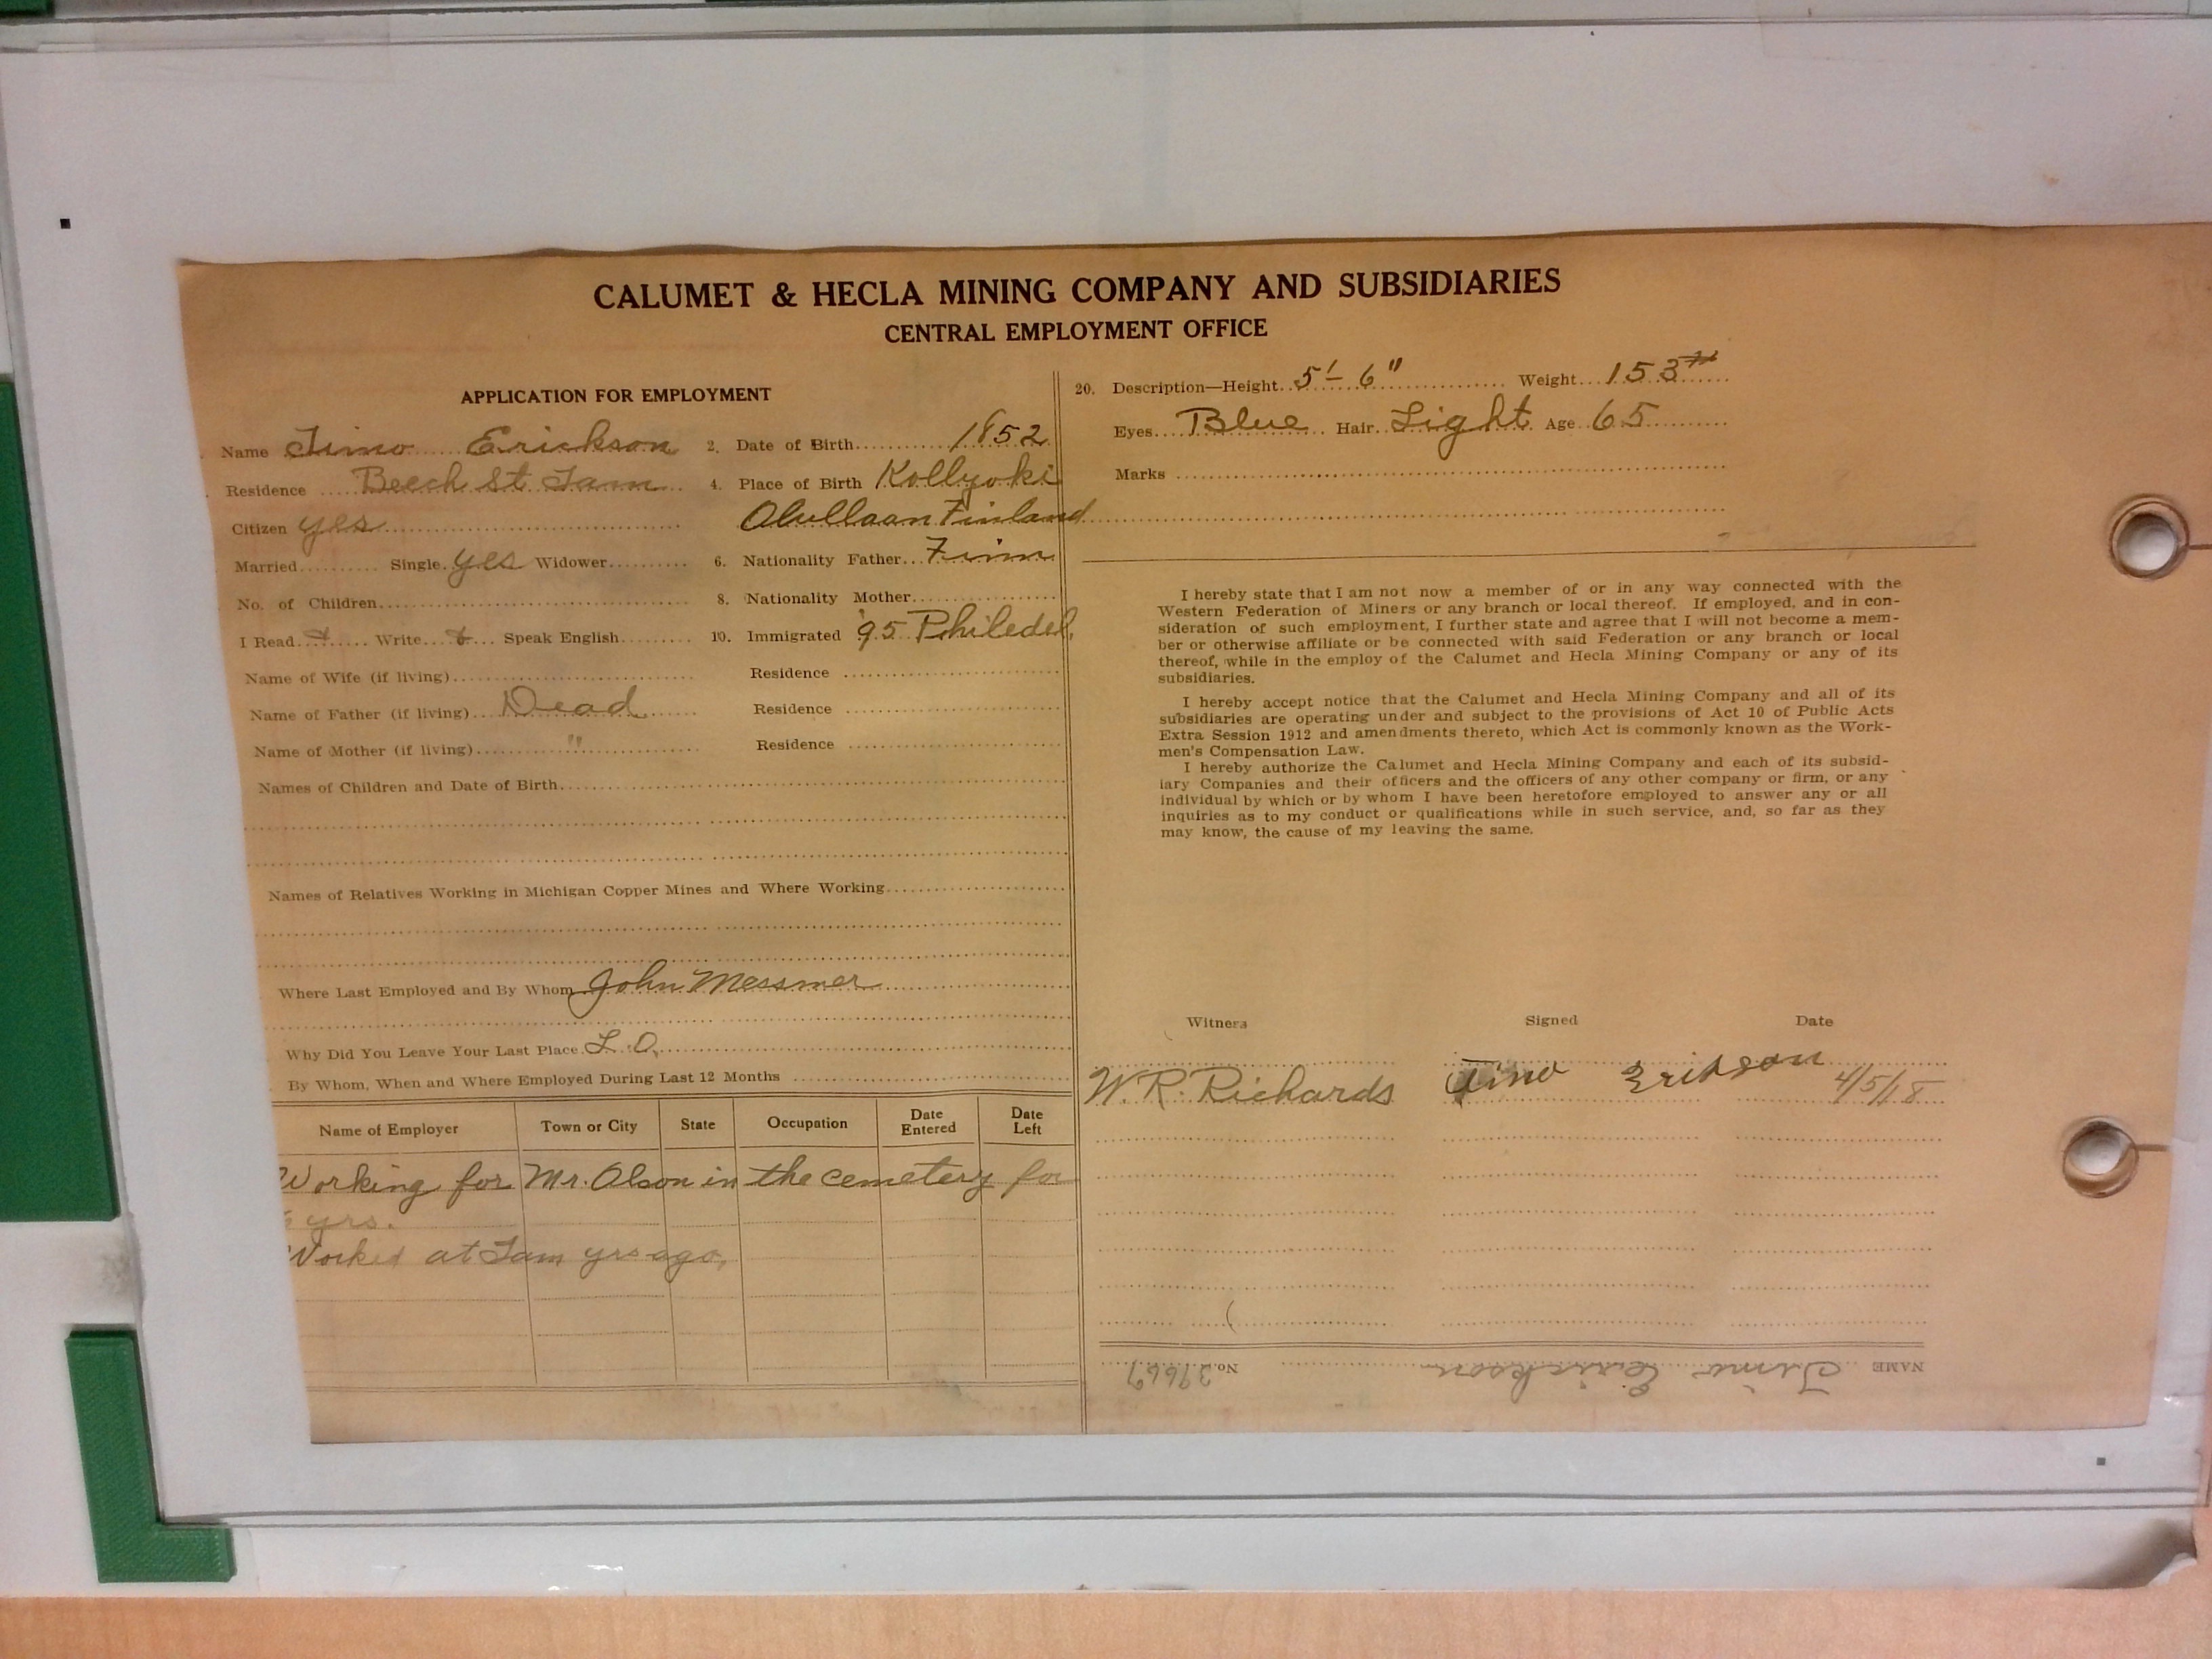 CALUMET & HECLA MINING COMPANY AND SUBSIDIARIES
CENTRAL EMPLOYMENT OFFICE
APPLICATION FOR EMPLOYMENT
Name Timo Erickson 2. Date of Birth 1852
Residence Beech St Tam 4. Place of Birth Kollyoki
Citizen yes Finland
Married Single yes Widower 6. Nationality Father Finn
No. of Children 8. Nationality Mother
I Read Write Speak English 10. Immigrated '95 Philedel.
Name of Wife (if living) Residence
Name of Father (if living) Dead Residence
Name of Mother (if living) " Residence
Names of Children and Date of Birth
Names of Relatives Working in Michigan Copper Mines and Where Working
Where Last Employed and By Whom John Messmer
Why Did You Leave Your Last Place L.O.
By Whom, When and Where Employed During Last 12 Months
Name of Employer Town or City State Occupation Date Entered Date Left
Working for Mr. Olson in the cemetery for
yrs.
Worked at Tam yrs ago,
20. Description—Height 5'-6" Weight 153#
Eyes Blue Hair Light Age 65
Marks
I hereby state that I am not now a member of or in any way connected with the
Western Federation of Miners or any branch or local thereof. If employed, and in con-
sideration of such employment, I further state and agree that I will not become a mem-
ber or otherwise affiliate or be connected with said Federation or any branch or local
thereof, while in the employ of the Calumet and Hecla Mining Company or any of its
subsidiaries.
I hereby accept notice that the Calumet and Hecla Mining Company and all of its
subsidiaries are operating under and subject to the provisions of Act 10 of Public Acts
Extra Session 1912 and amendments thereto, which Act is commonly known as the Work-
men's Compensation Law.
I hereby authorize the Calumet and Hecla Mining Company and each of its subsid-
iary Companies and their officers and the officers of any other company or firm, or any
individual by which or by whom I have been heretofore employed to answer any or all
inquiries as to my conduct or qualifications while in such service, and, so far as they
may know, the cause of my leaving the same.
Witness Signed Date
W. R. Richards Timo Erikson 4/5/18
NAME Timo Erickson No. 39667